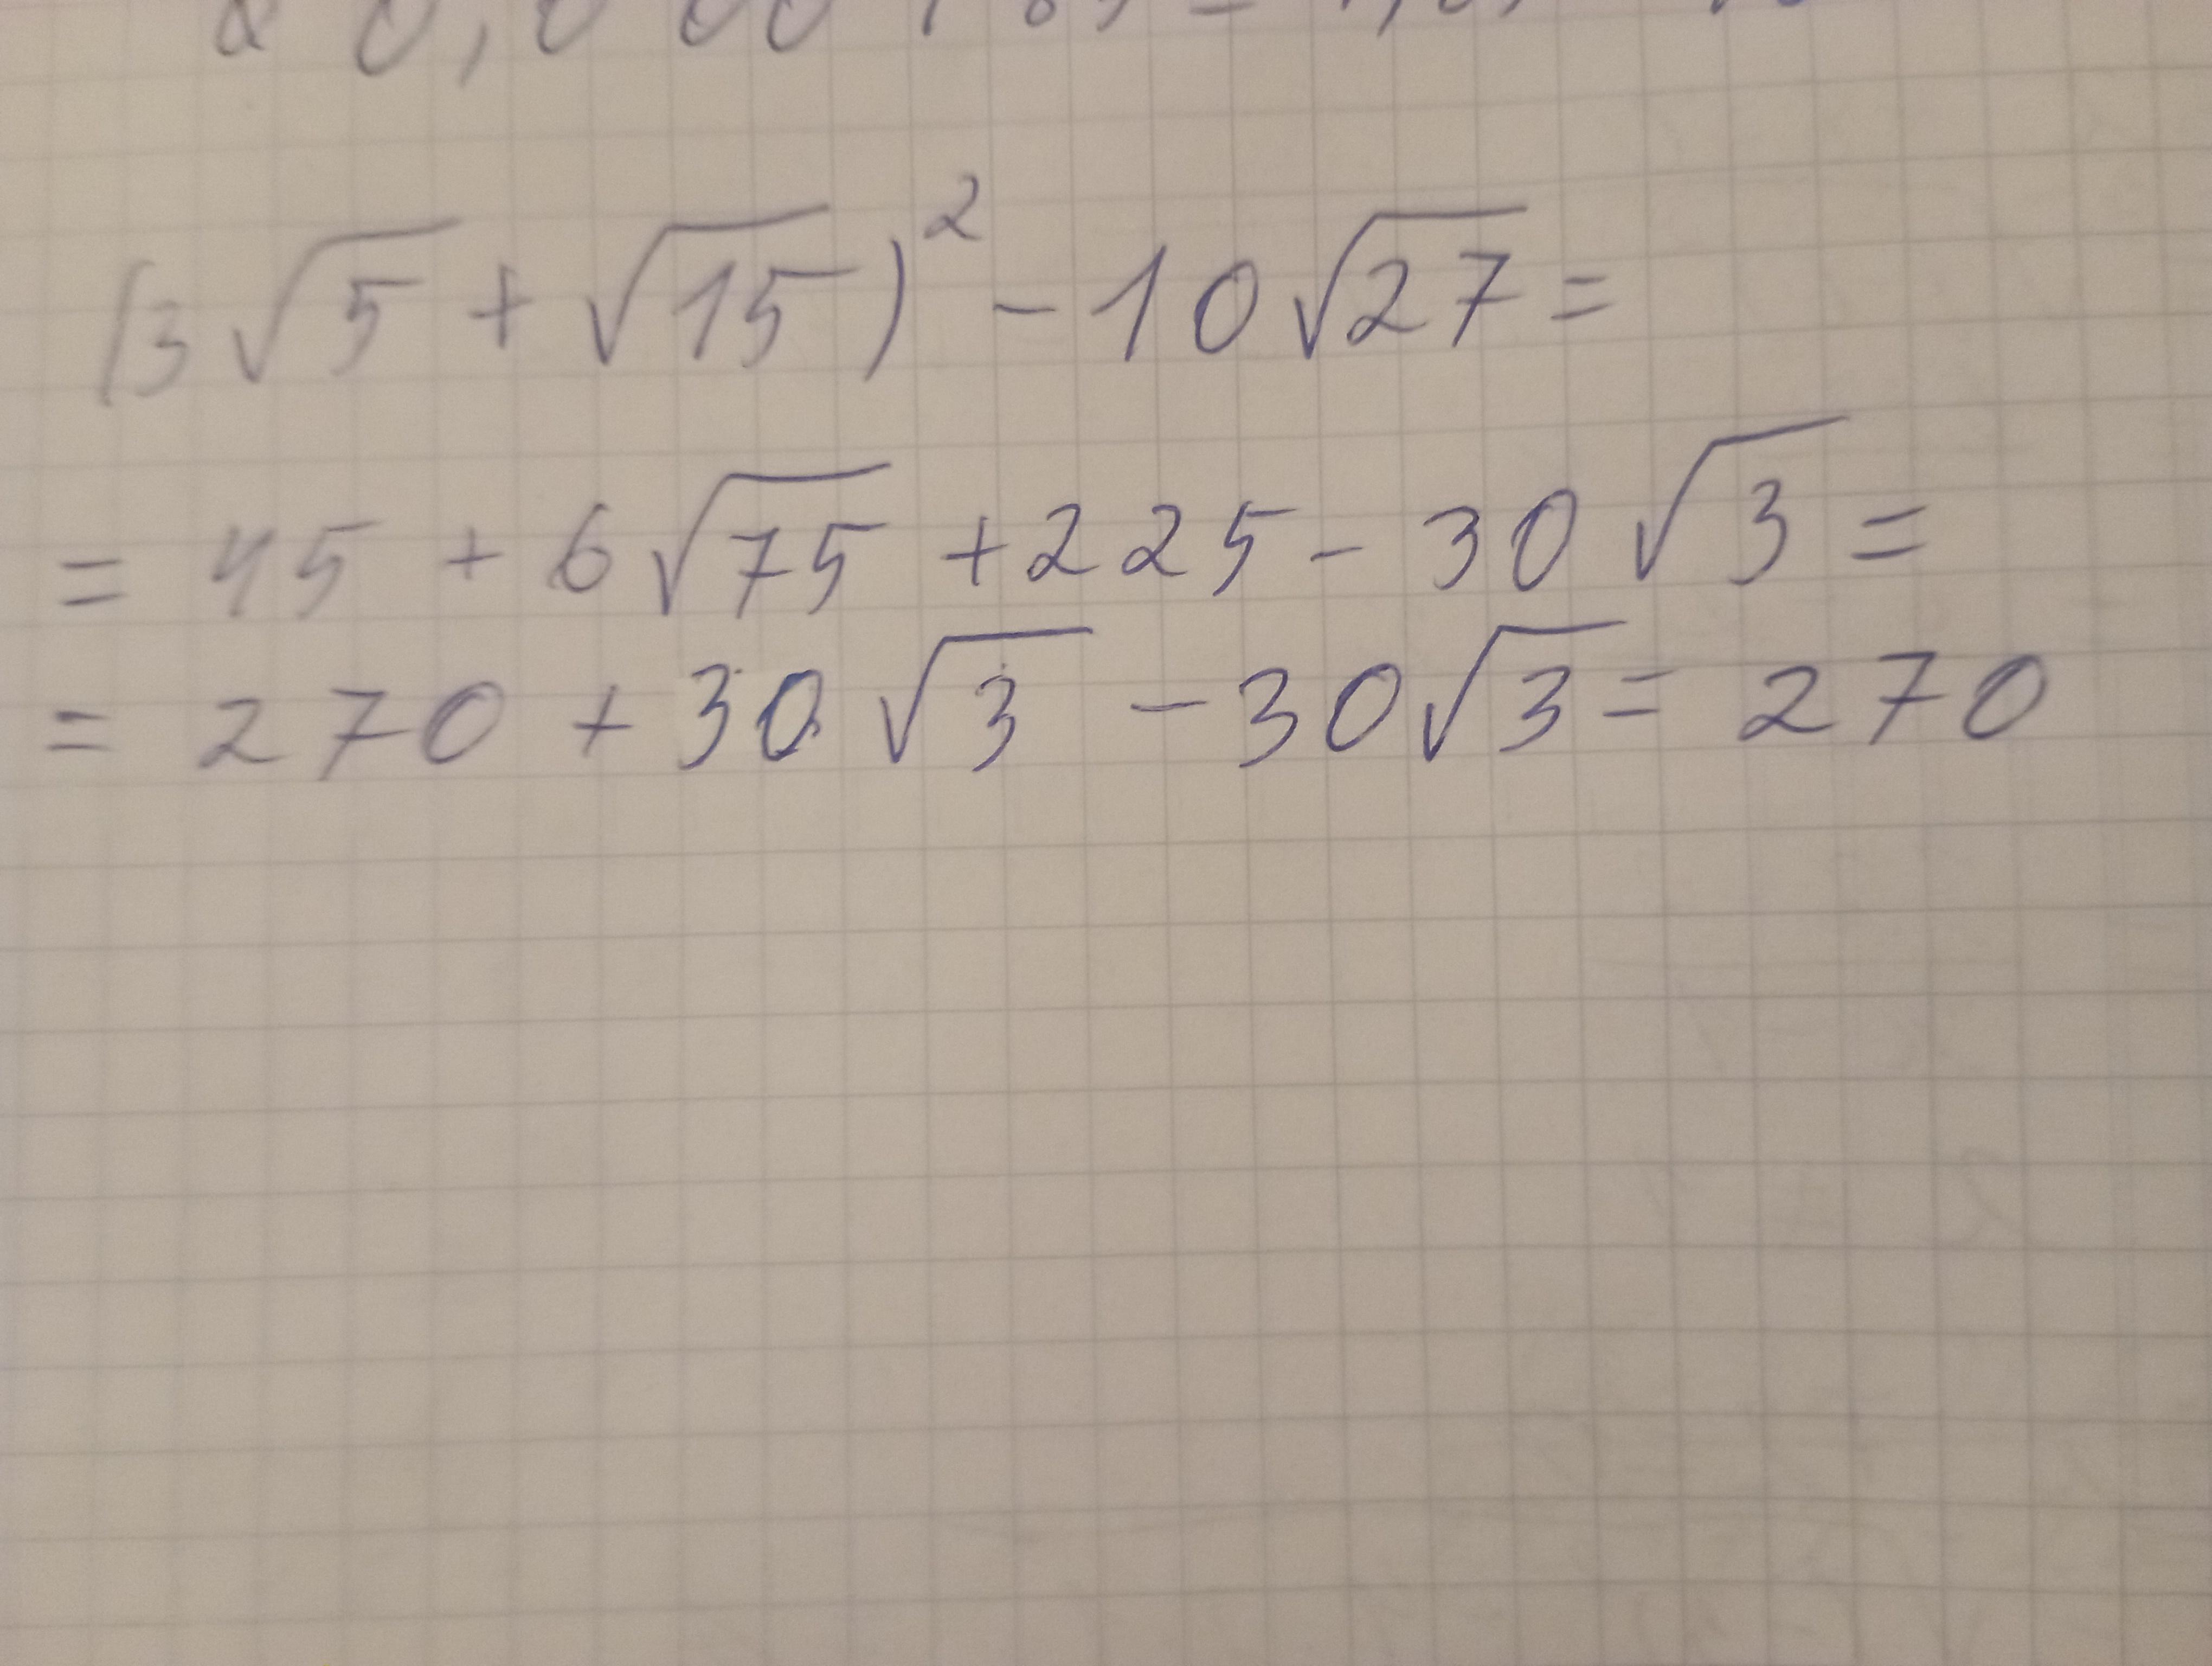 (3√5 + √15)² - 10√27 =
= 45 + 6√75 + 225 - 30√3 =
= 270 + 30√3 - 30√3 = 270